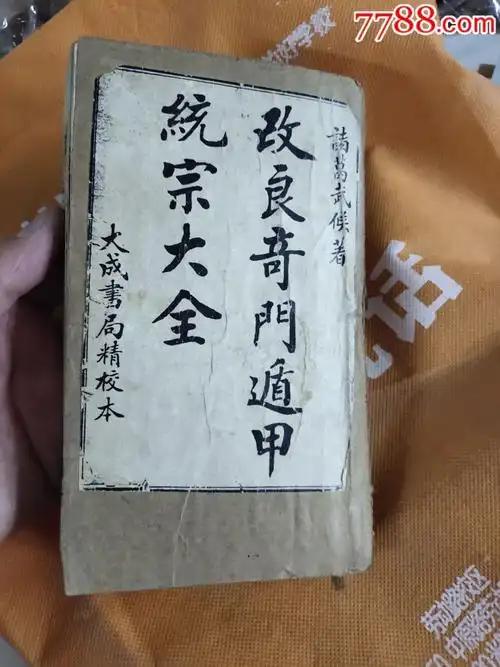 7788.com
諸葛武侯著
改良奇門遁甲
統宗大全
大成書局精校本
学校
话